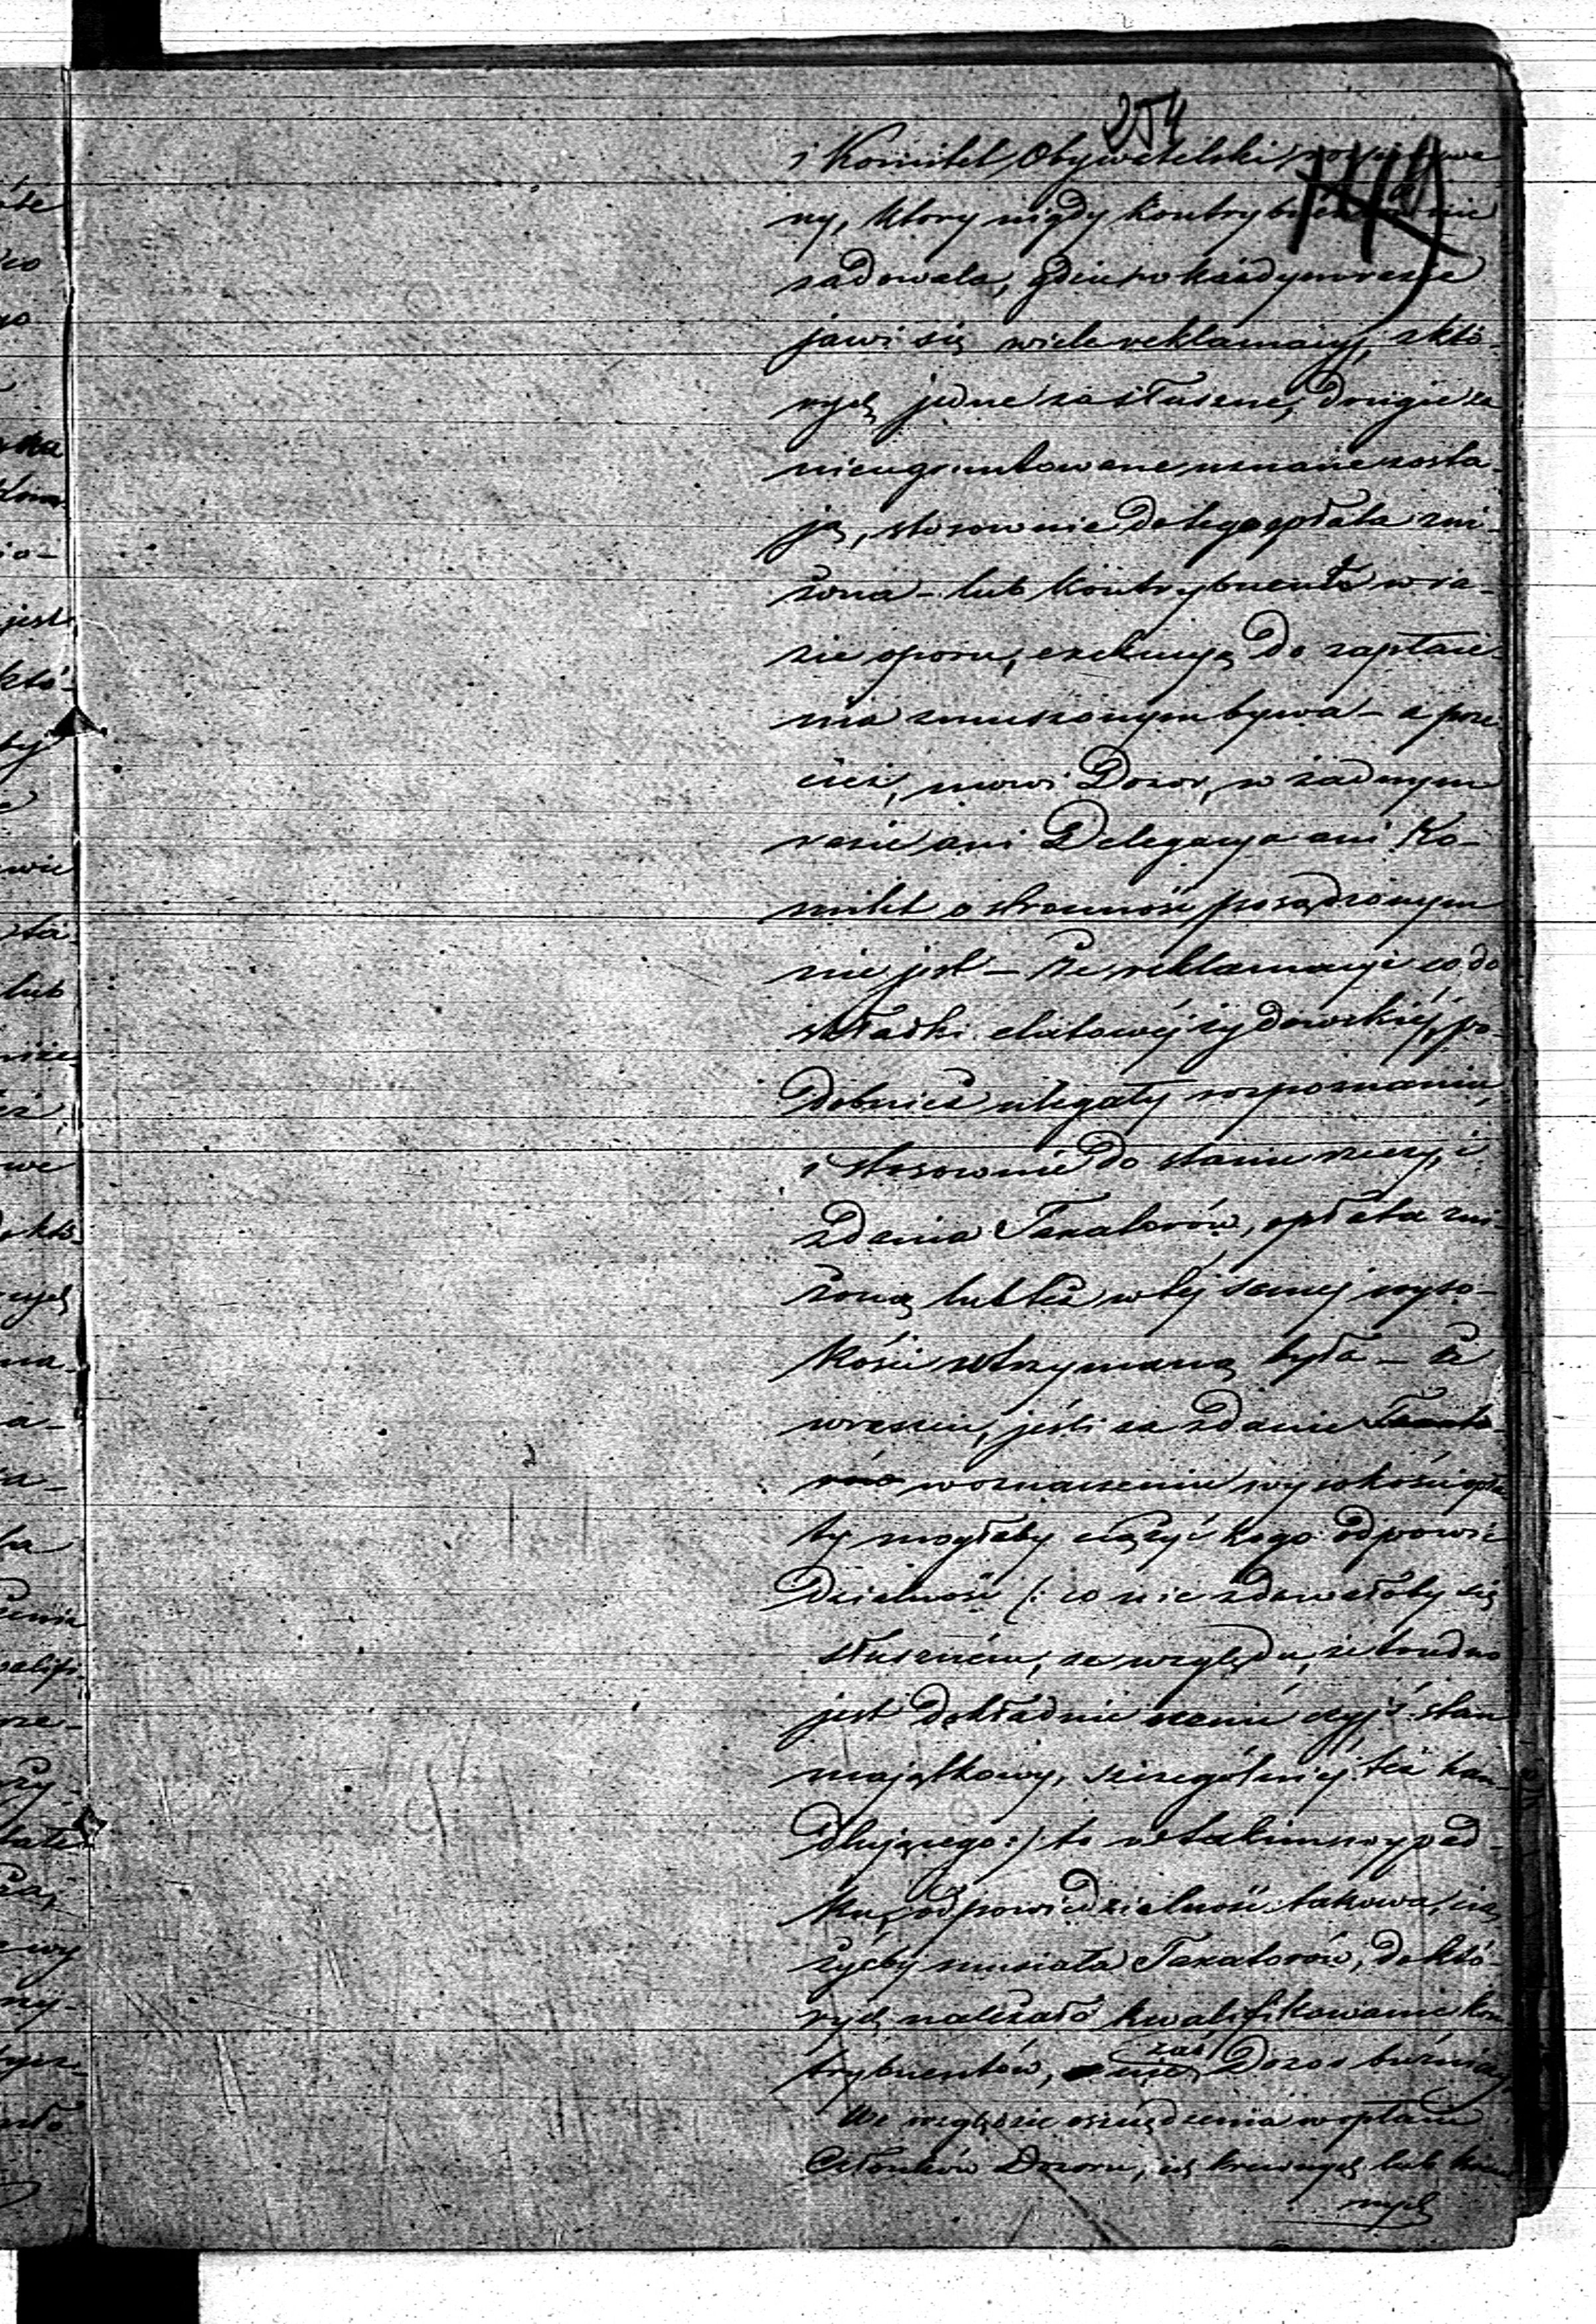 254
i Komitet Obywatelski
ny, ktory nigdy kontrybuenta nie
zadowala, gdzie w każdym razie
jawi się wiele reklamacyj, z któ-
rych jedne za słuszne, drugie za
nieugruntowane uznane zosta-
ją, stosownie do tego opłata zni-
żona – lub kontrybuent w ra-
zie oporu, exekucyą do zapłace-
nia zmuszonym bywa – a prze
cież, mowi Dozor, w żadnym
razie ani Delegacya ani Ko-
mitet o stronność posądzonym
nie jest – Że reklamacye co do
składki etatowéj żydowskiéj, po-
dobnież ulegały rozpoznaniu,
i stosownie do stanu rzeczy, i
zdania Taxatorów, opłata zni-
żoną lub też w tej samej wyso-
kości utrzymaną była – że
wreszcie, jeśli za zdanie Taxato-
rów w oznaczeniu wysokości opła
ty mogłaby ciążyć kogo odpowie
dzialność /: co nie zdawałoby się
słuszném, ze względu, że trudno
jest dokładnie ocenić czyjś stan
majątkowy, szczególniéj też han-
dlującego :/ to w takim wypad-
ku, odpowiedzialność takowa, cią
żyćby musiała Taxatorów, do któ-
rych należało kwalifikowanie kon
trybuentów, nie zaś Dozor bużniczy.
We względzie oszczędzenia w opłacie
Członków Dozoru, ich krewnych lub
nych